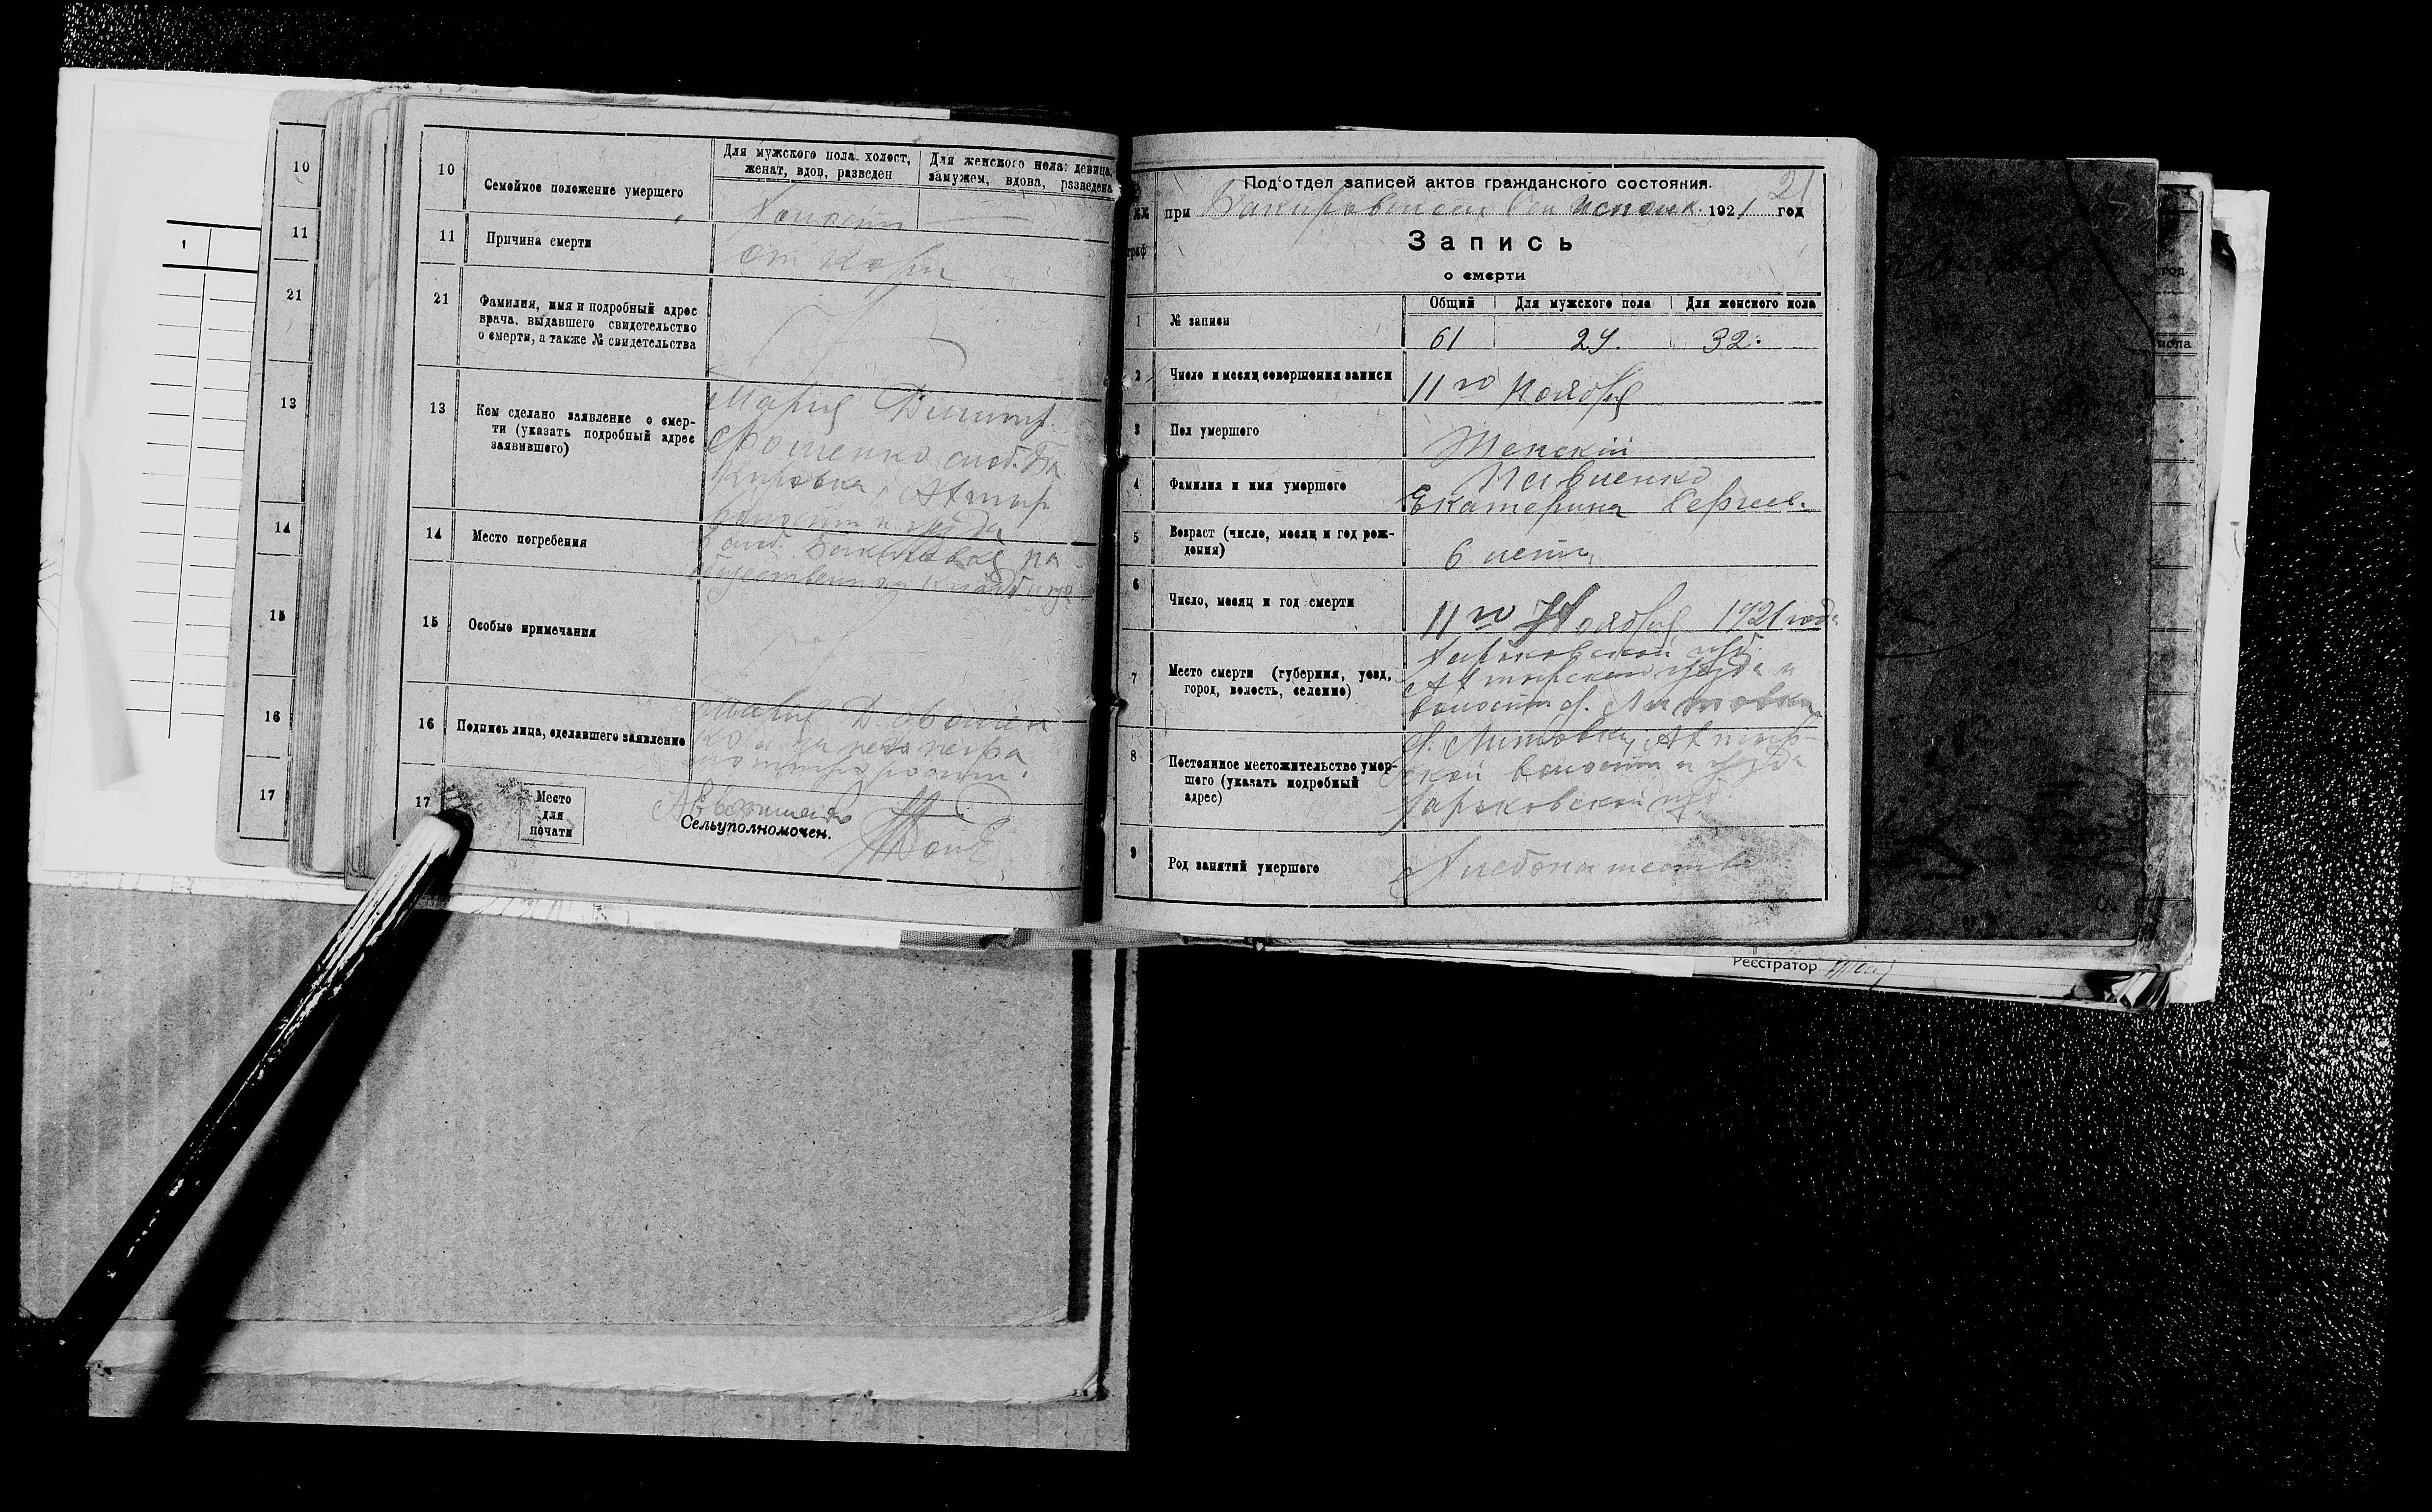 10
11
21
13
14
15
16
17
1
10
Семейное положение умершего
Для мужского пола. холост,
женат, вдов, разведен
Для женского пола: девица,
замужем, вдова, разведена
Холост
11
Причина смерти
от кори
21
Фамилия, имя и подробный адрес
врача, выдавшего свидетельство
о смерти, а также № свидетельства
13
Кем сделано заявление о смер-
ти (указать подробный адрес
заявившего)
Мария Димитр.
слоб. Ба
кировка, Ахтыр
волости и уезда
14
Место погребения
в слоб. Бакировке на
общественном кладбище
15
Особые примечания
16
Подпись лица, сделавшего заявление
17
Место
для
печати
Сельуполномочен.
№№
граф
Под'отдел записей актов гражданского состояния.
21
при Бакировском Вол Исполк. 1921 год
Запись
о смерти
1
№ записи
Общий
Для мужского пола
Для женского пола
61
29.
32.
2
Число и месяц совершения записи
11го Ноября
3
Пол умершего
Женский
4
Фамилия и имя умершего
Екатерина Сергеев.
5
Возраст (число, месяц и год рож-
дения)
6 лет
6
Число, месяц и год смерти
11го Ноября 1921 года
7
Место смерти (губерния, уезд,
город, волость, селение)
Харьковской губ.
Ахтырского уезда и
волости с. Литовка
8
Постоянное местожительство умер-
шего (указать подробный
адрес)
с. Литовка, Ахтыр-
ской волости и уезда
Харьковской губ.
9
Род занятий умершего
Хлебопашество
год
пола
Регистратор